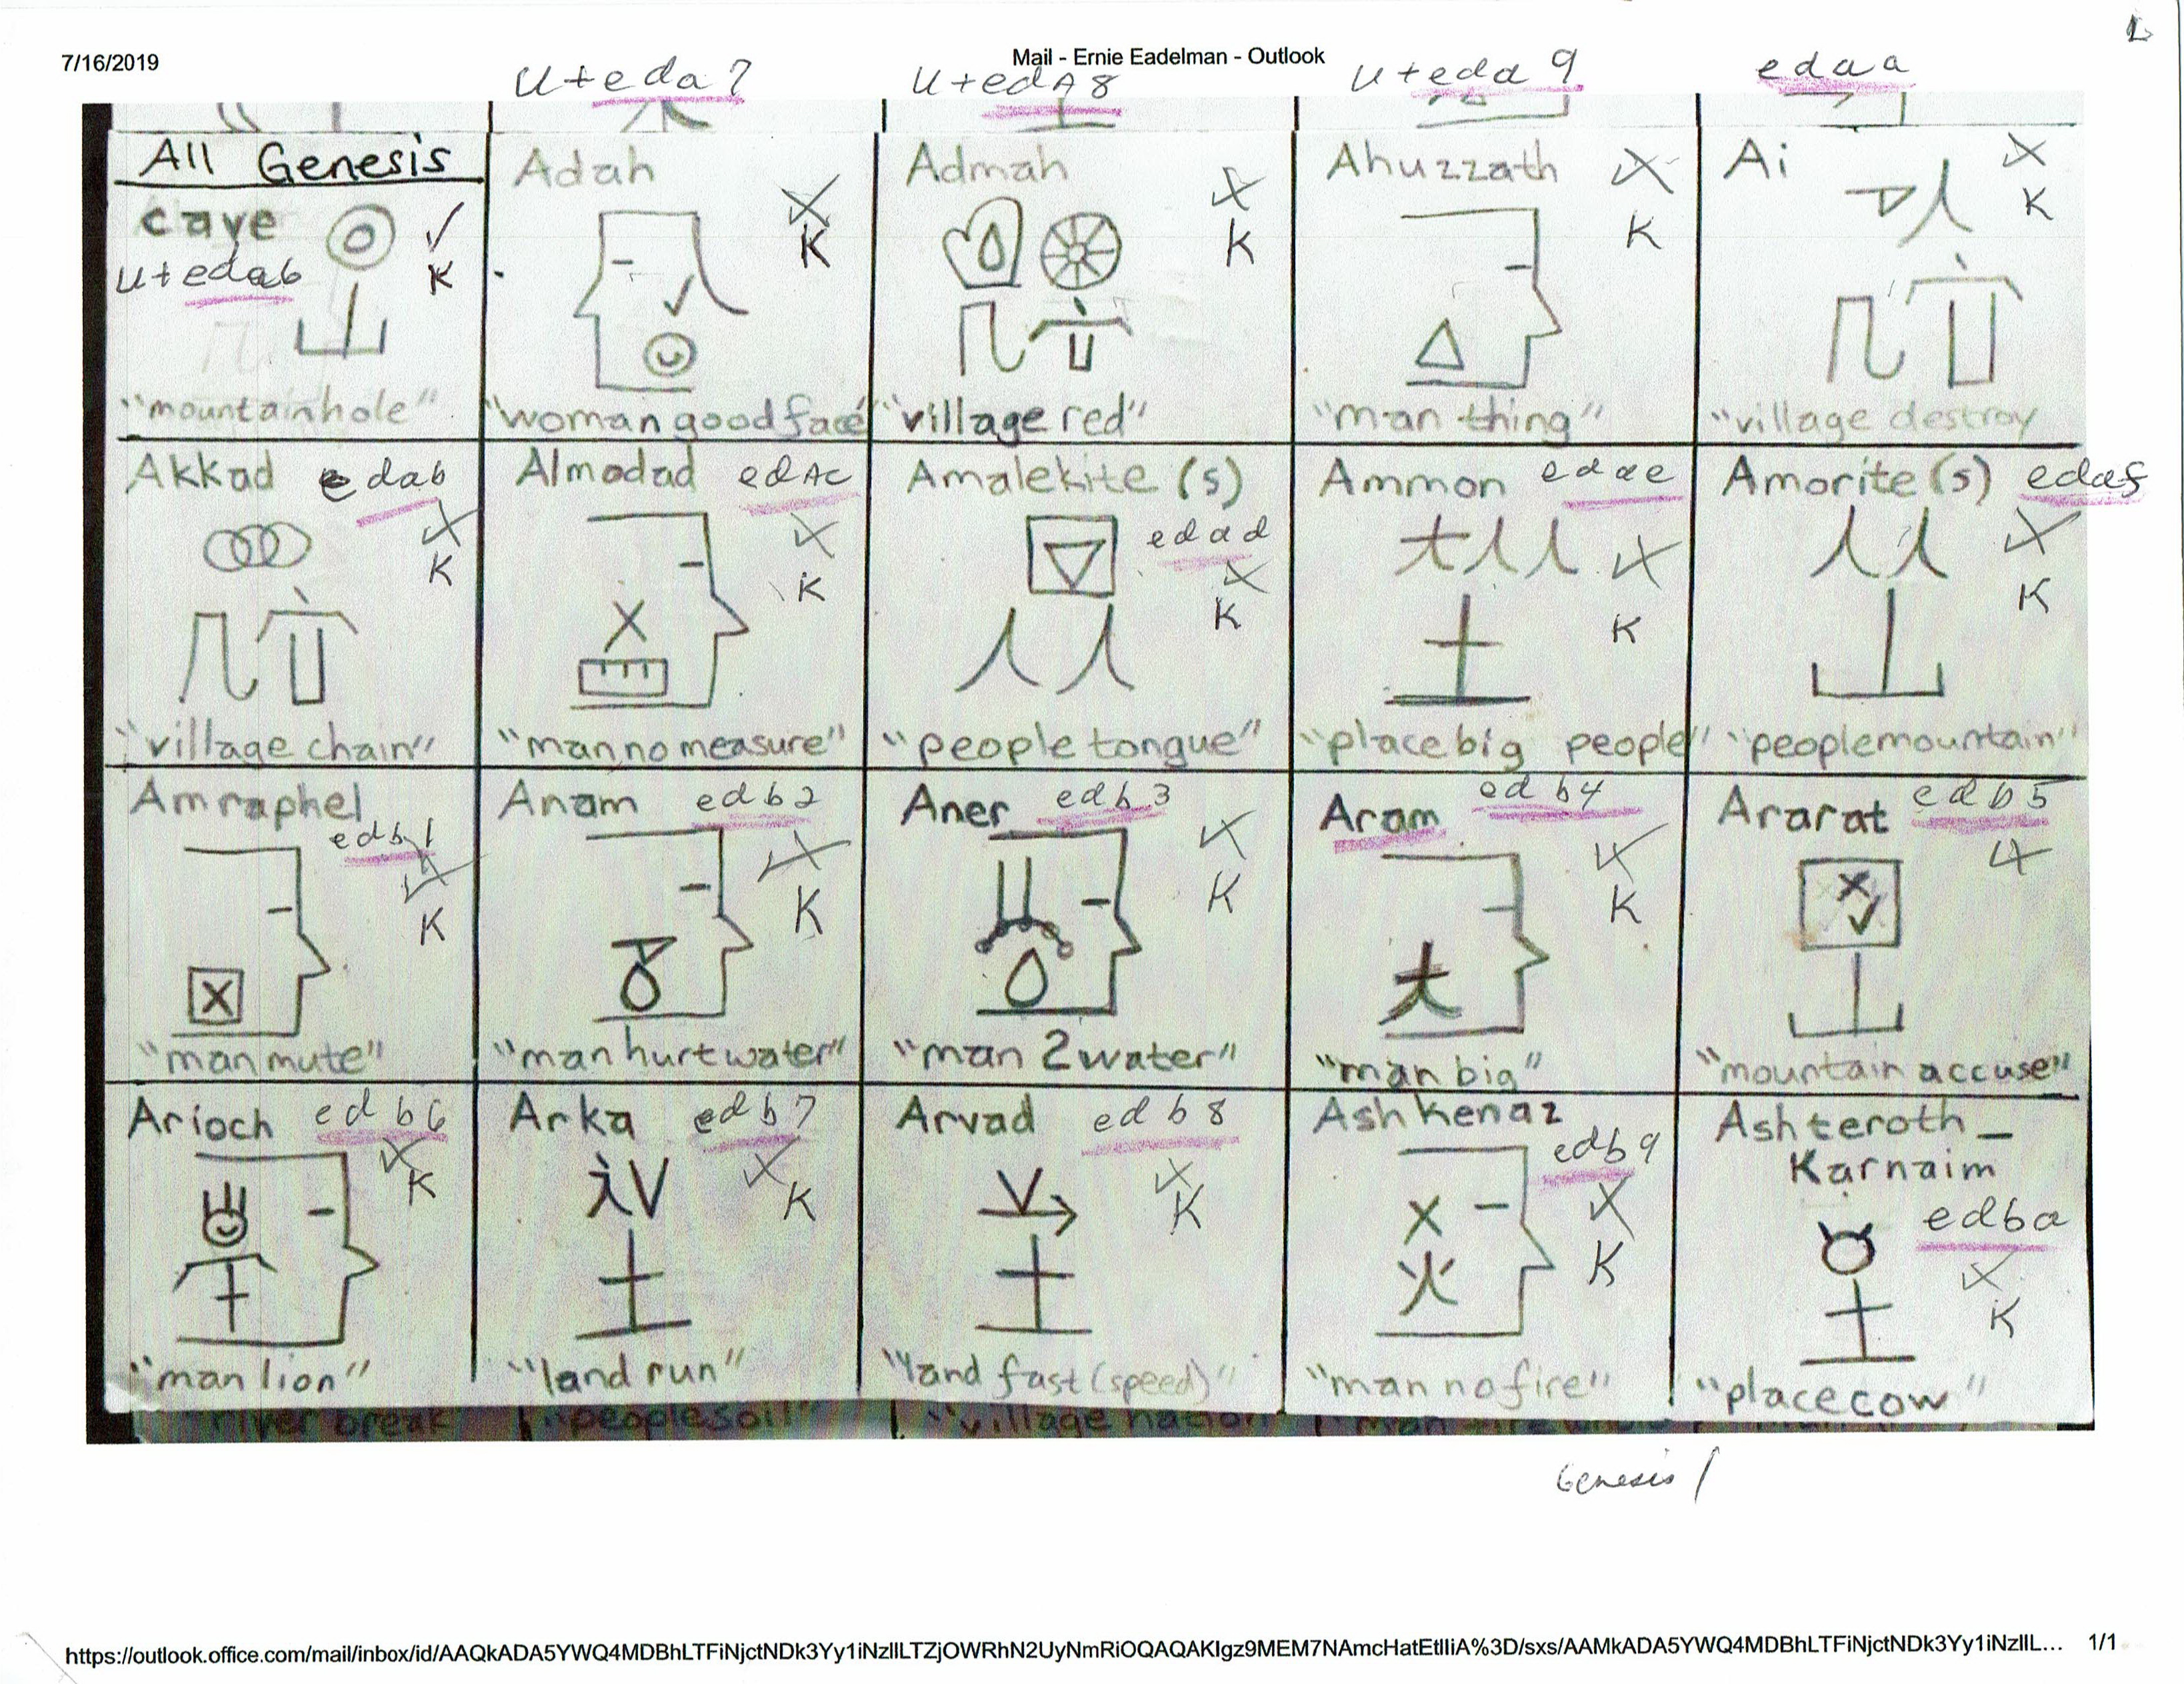 7/16/2019
Mail - Ernie Eadelman - Outlook
U+eda7
U+edA8
U+eda9
edaa
All Genesis
cave
U+eda6
✓
K
"mountain hole"
Adah
K
"woman good face
Admah
K
"village red"
Ahuzzath
K
"man thing"
Ai
K
"village destroy
Akkad edab
K
"village chain"
Almodad edAc
K
"man no measure"
Amalekite (s)
edad
K
"people tongue"
Ammon edae
K
"place big people"
Amorite (s) edaf
K
"people mountain"
Amraphel
edb1
K
"man mute"
Anam edb2
K
"man hurt water"
Aner edb3
K
"man 2 water"
Aram edb4
K
"man big"
Ararat edb5
"mountain accuse"
Arioch edb6
K
"man lion"
Arka edb7
K
"land run"
Arvad edb8
K
"land fast (speed)"
Ashkenaz
edb9
K
"man no fire"
Ashteroth_
Karnaim
edba
K
"place cow"
"river break
"people soil"
"village nation
Genesis 1
https://outlook.office.com/mail/inbox/id/AAQkADA5YWQ4MDBhLTFiNjctNDk3Yy1iNzllLTZjOWRhN2UyNmRiOQAQAKIgz9MEM7NAmcHatEtlliA%3D/sxs/AAMkADA5YWQ4MDBhLTFiNjctNDk3Yy1iNzllL... 1/1